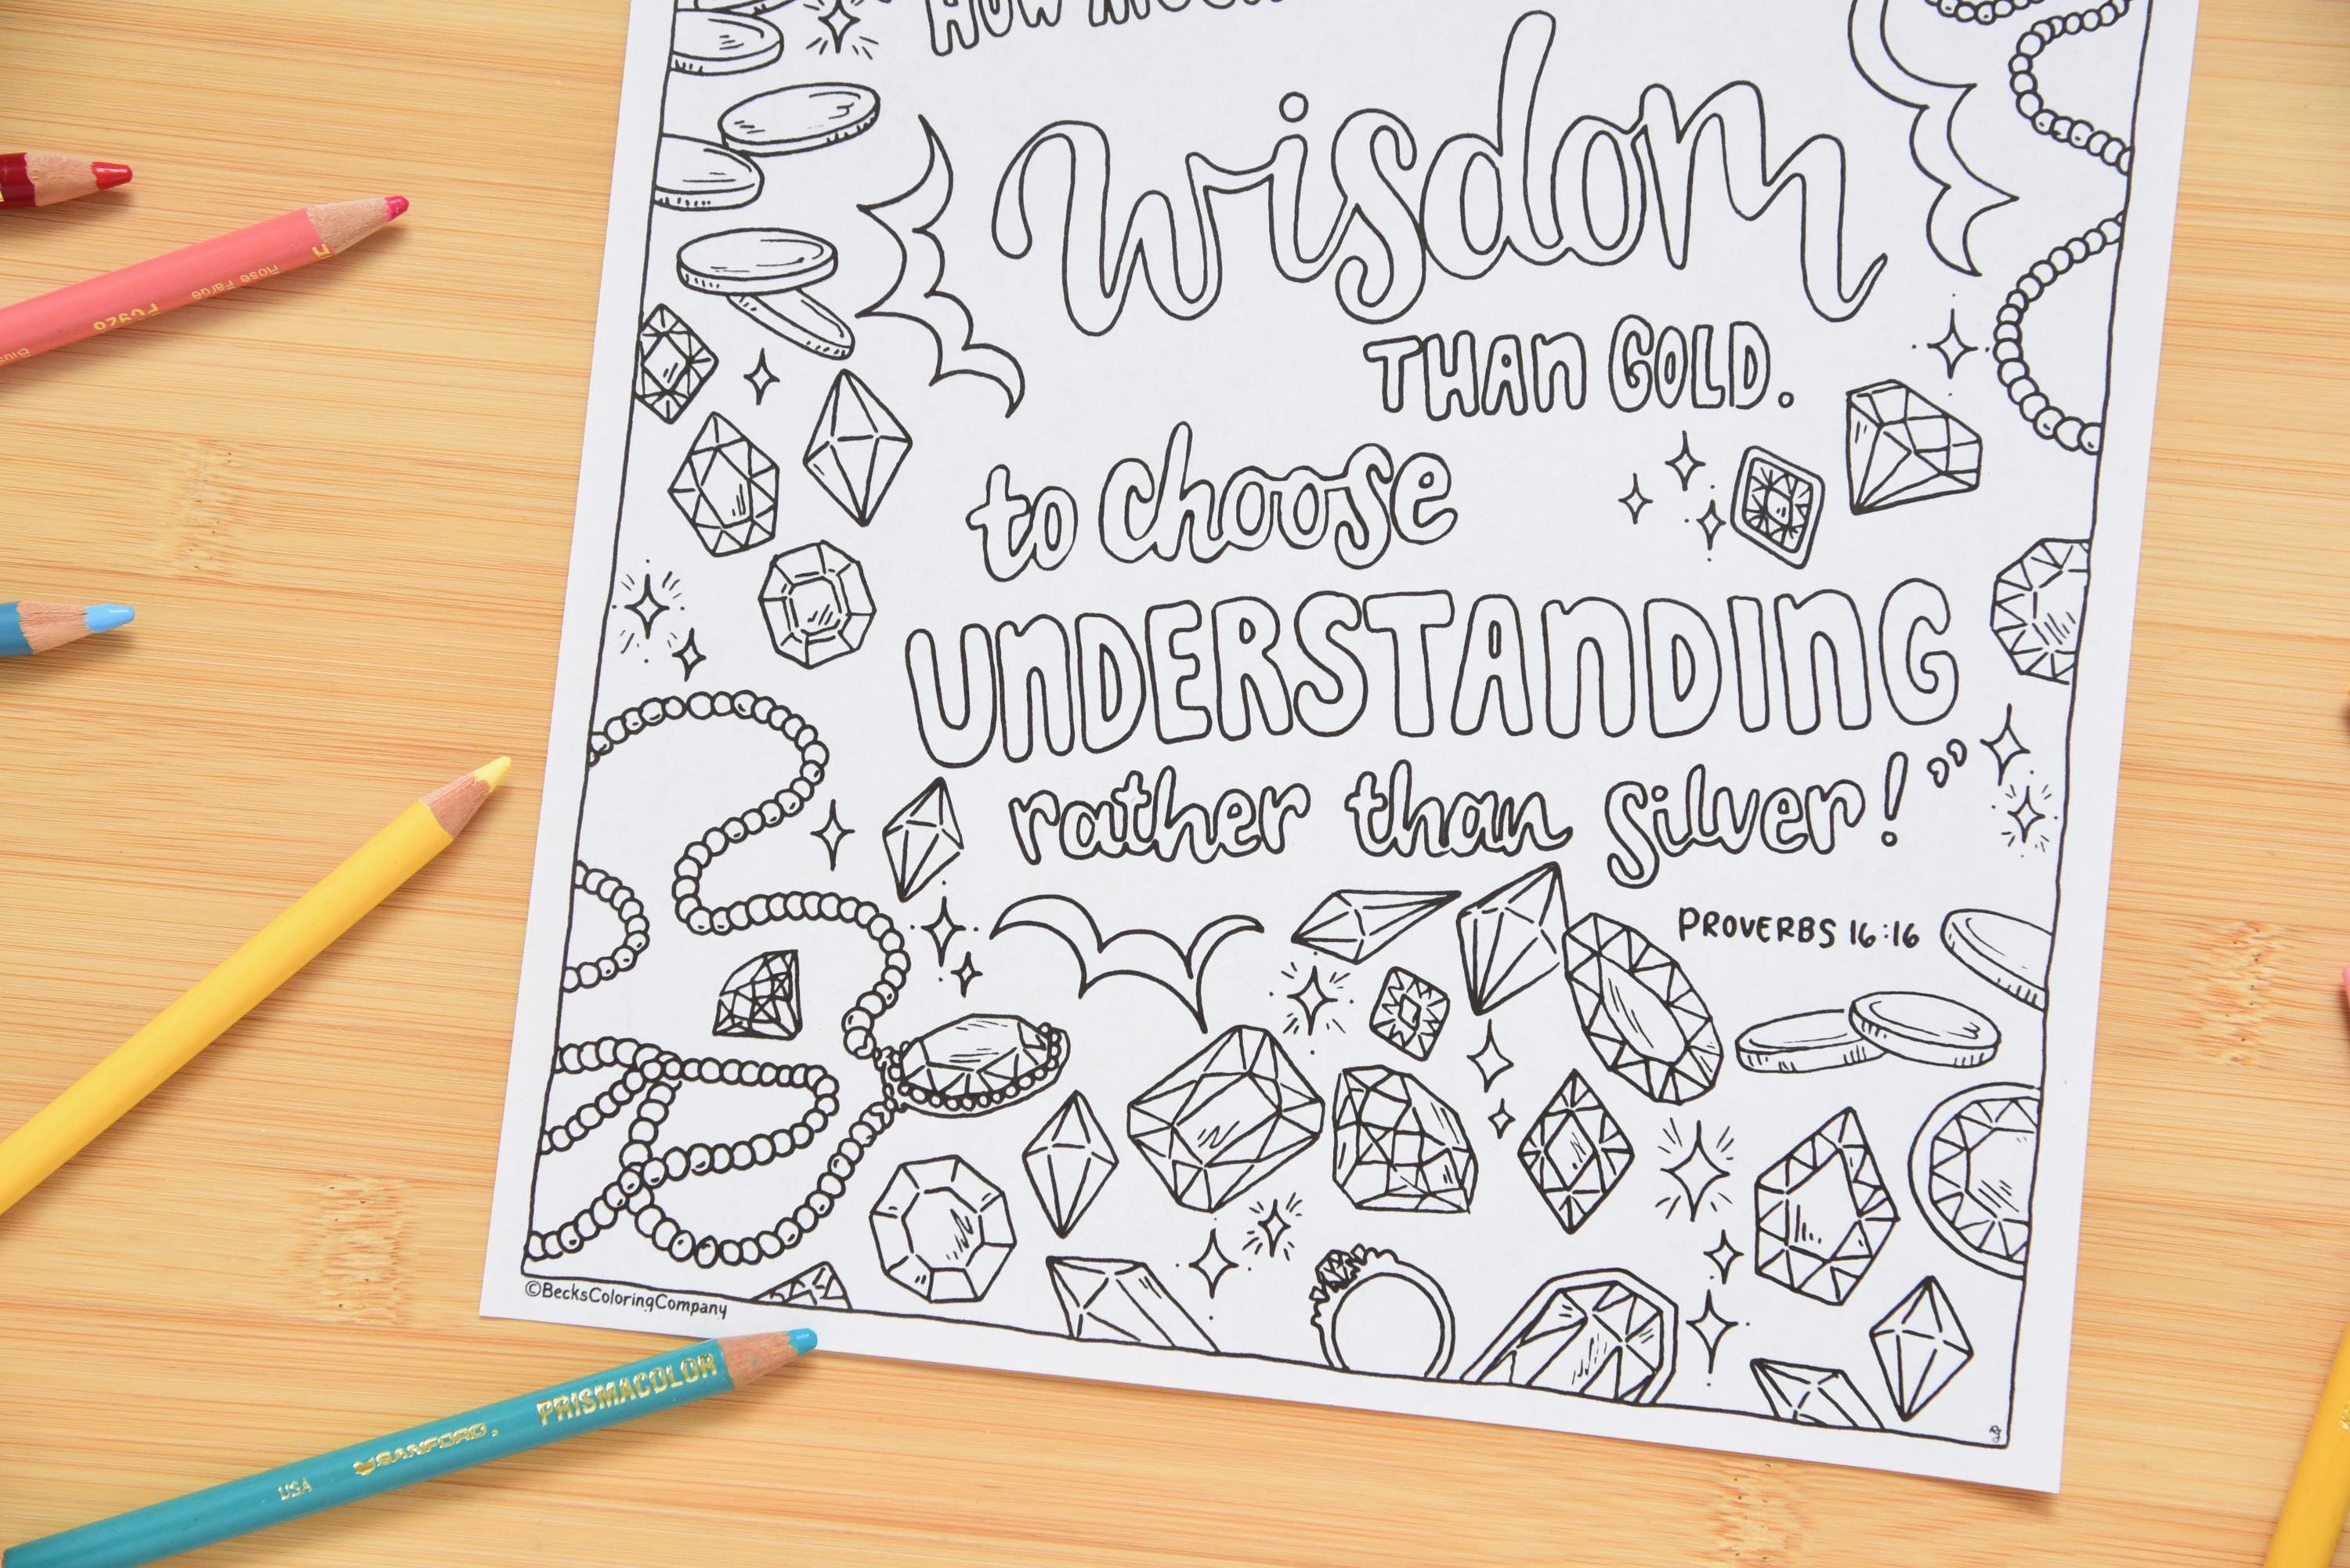 HOW
wisdom
THAN GOLD.
to choose
UNDERSTANDING
rather than silver!”
PROVERBS 16:16
©BecksColoringCompany
PRISMACOLOR
SANFORD.
USA
PC928
Rose Farge
Blus